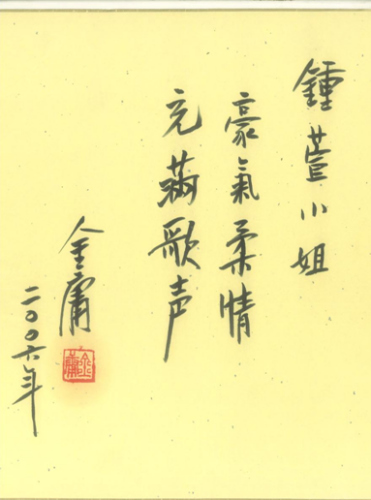 鍾萱小姐
豪氣柔情
充滿歌声
金庸
二〇〇六年
金庸